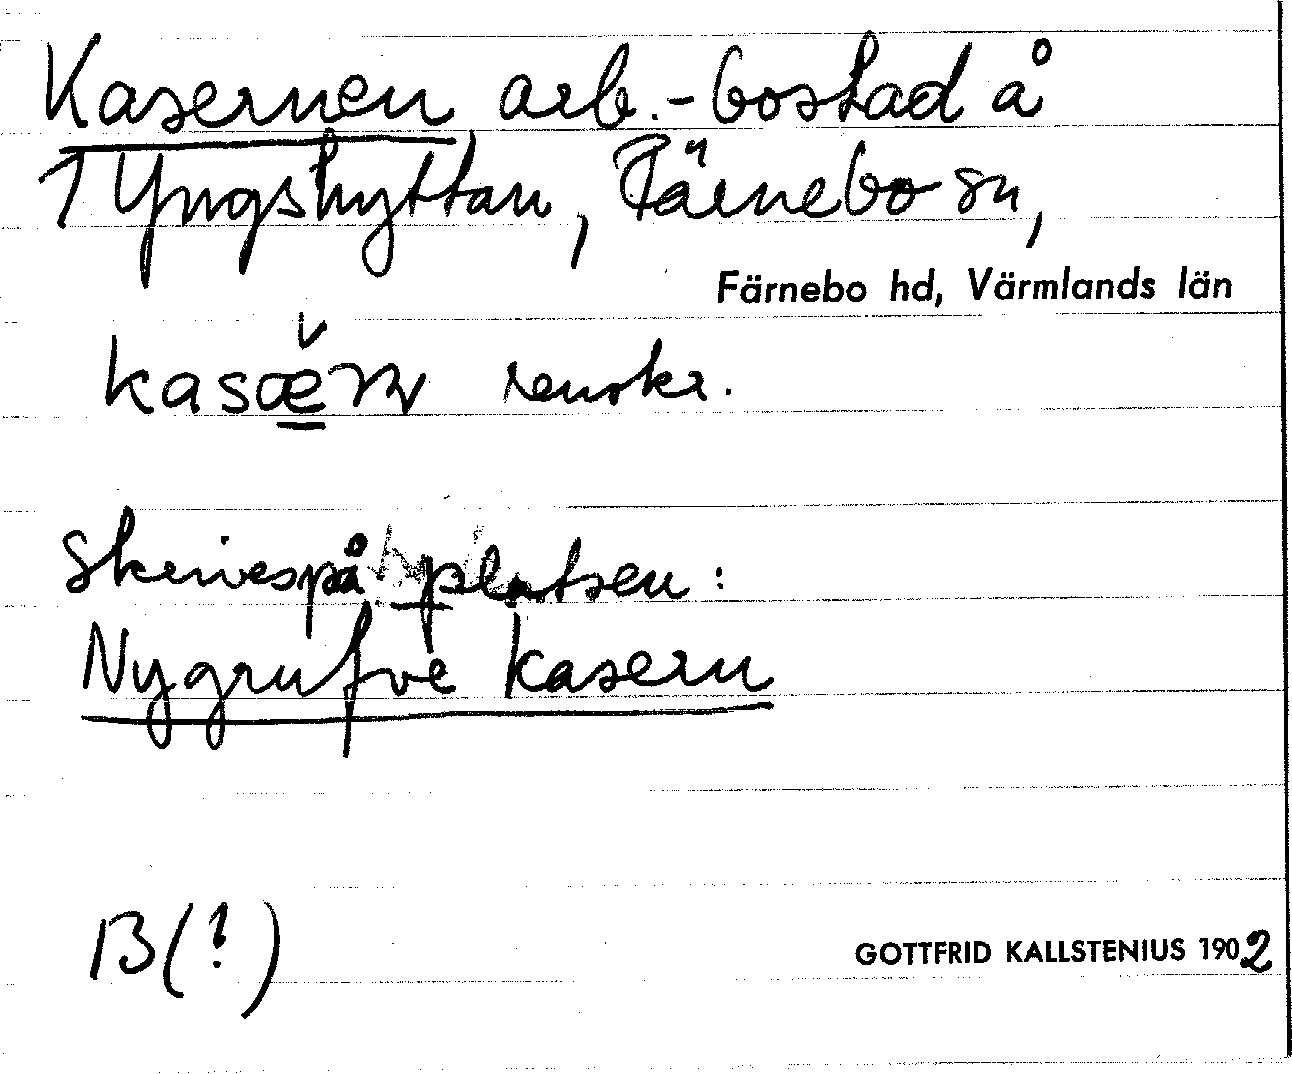 Kasernen arb.-bostad å
1 Yngshyttan, Färnebo sn,
Färnebo hd, Värmlands län
renskr.
Skrives på platsen:
Nygrufve kasern
B(?)
GOTTFRID KALLSTENIUS 1902